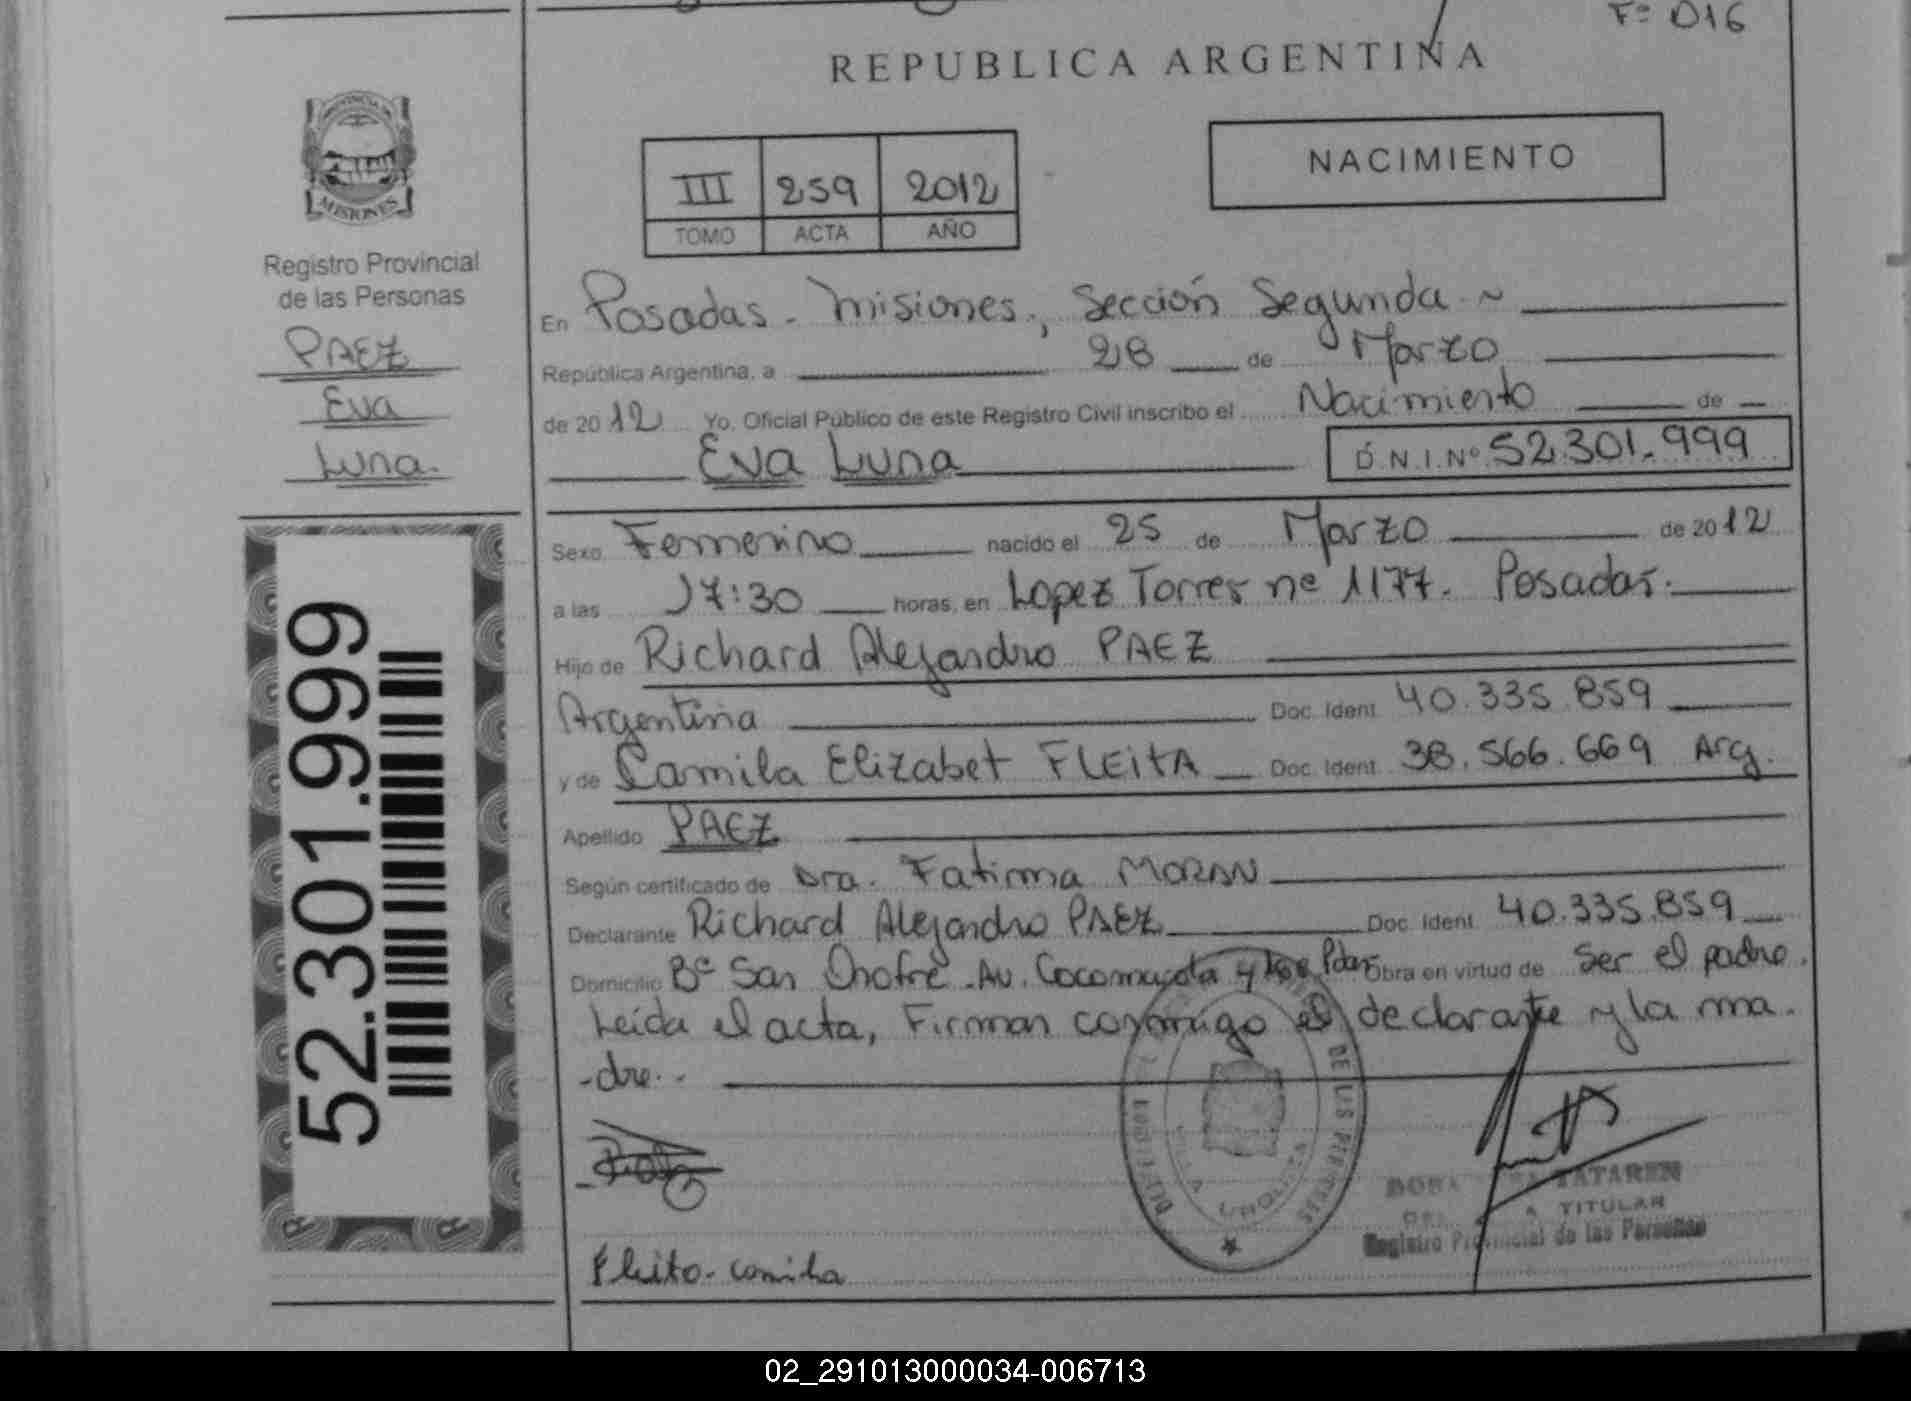 Fº 016
REPUBLICA ARGENTINA
PROVINCIA DE
MISIONES
Registro Provincial
de las Personas
PAEZ
Eva
Luna.
III 259 2012
TOMO ACTA AÑO
NACIMIENTO
En Posadas - Misiones, Sección Segunda
República Argentina, a 28 de Marzo
de 2012 Yo, Oficial Público de este Registro Civil inscribo el Nacimiento de
Eva Luna D.N.I.Nº 52.301.999
Sexo Femenino nacido el 25 de Marzo de 2012
a las 17:30 horas, en Lopez Torres nº 1177. Posadas.
Hijo de Richard Alejandro PAEZ
Argentina Doc. Ident. 40.335.859
y de Camila Elizabet FLEITA Doc. Ident. 38.566.669 Arg.
Apellido PAEZ
Según certificado de Dra. Fatima MORAN
Declarante Richard Alejandro PAEZ Doc. Ident. 40.335.859
Domicilio Bº San Onofre - Av. Cocomarola y Pdas Obra en virtud de ser el padre.
Leída el acta, Firman conmigo el declarante y la ma-
-dre.-
52.301.999
DE LAS PERSONAS
VILLA URQUIZA
TATAREN
TITULAR
Registro Provincial de las Personas
Fleita. camila
02_291013000034-006713